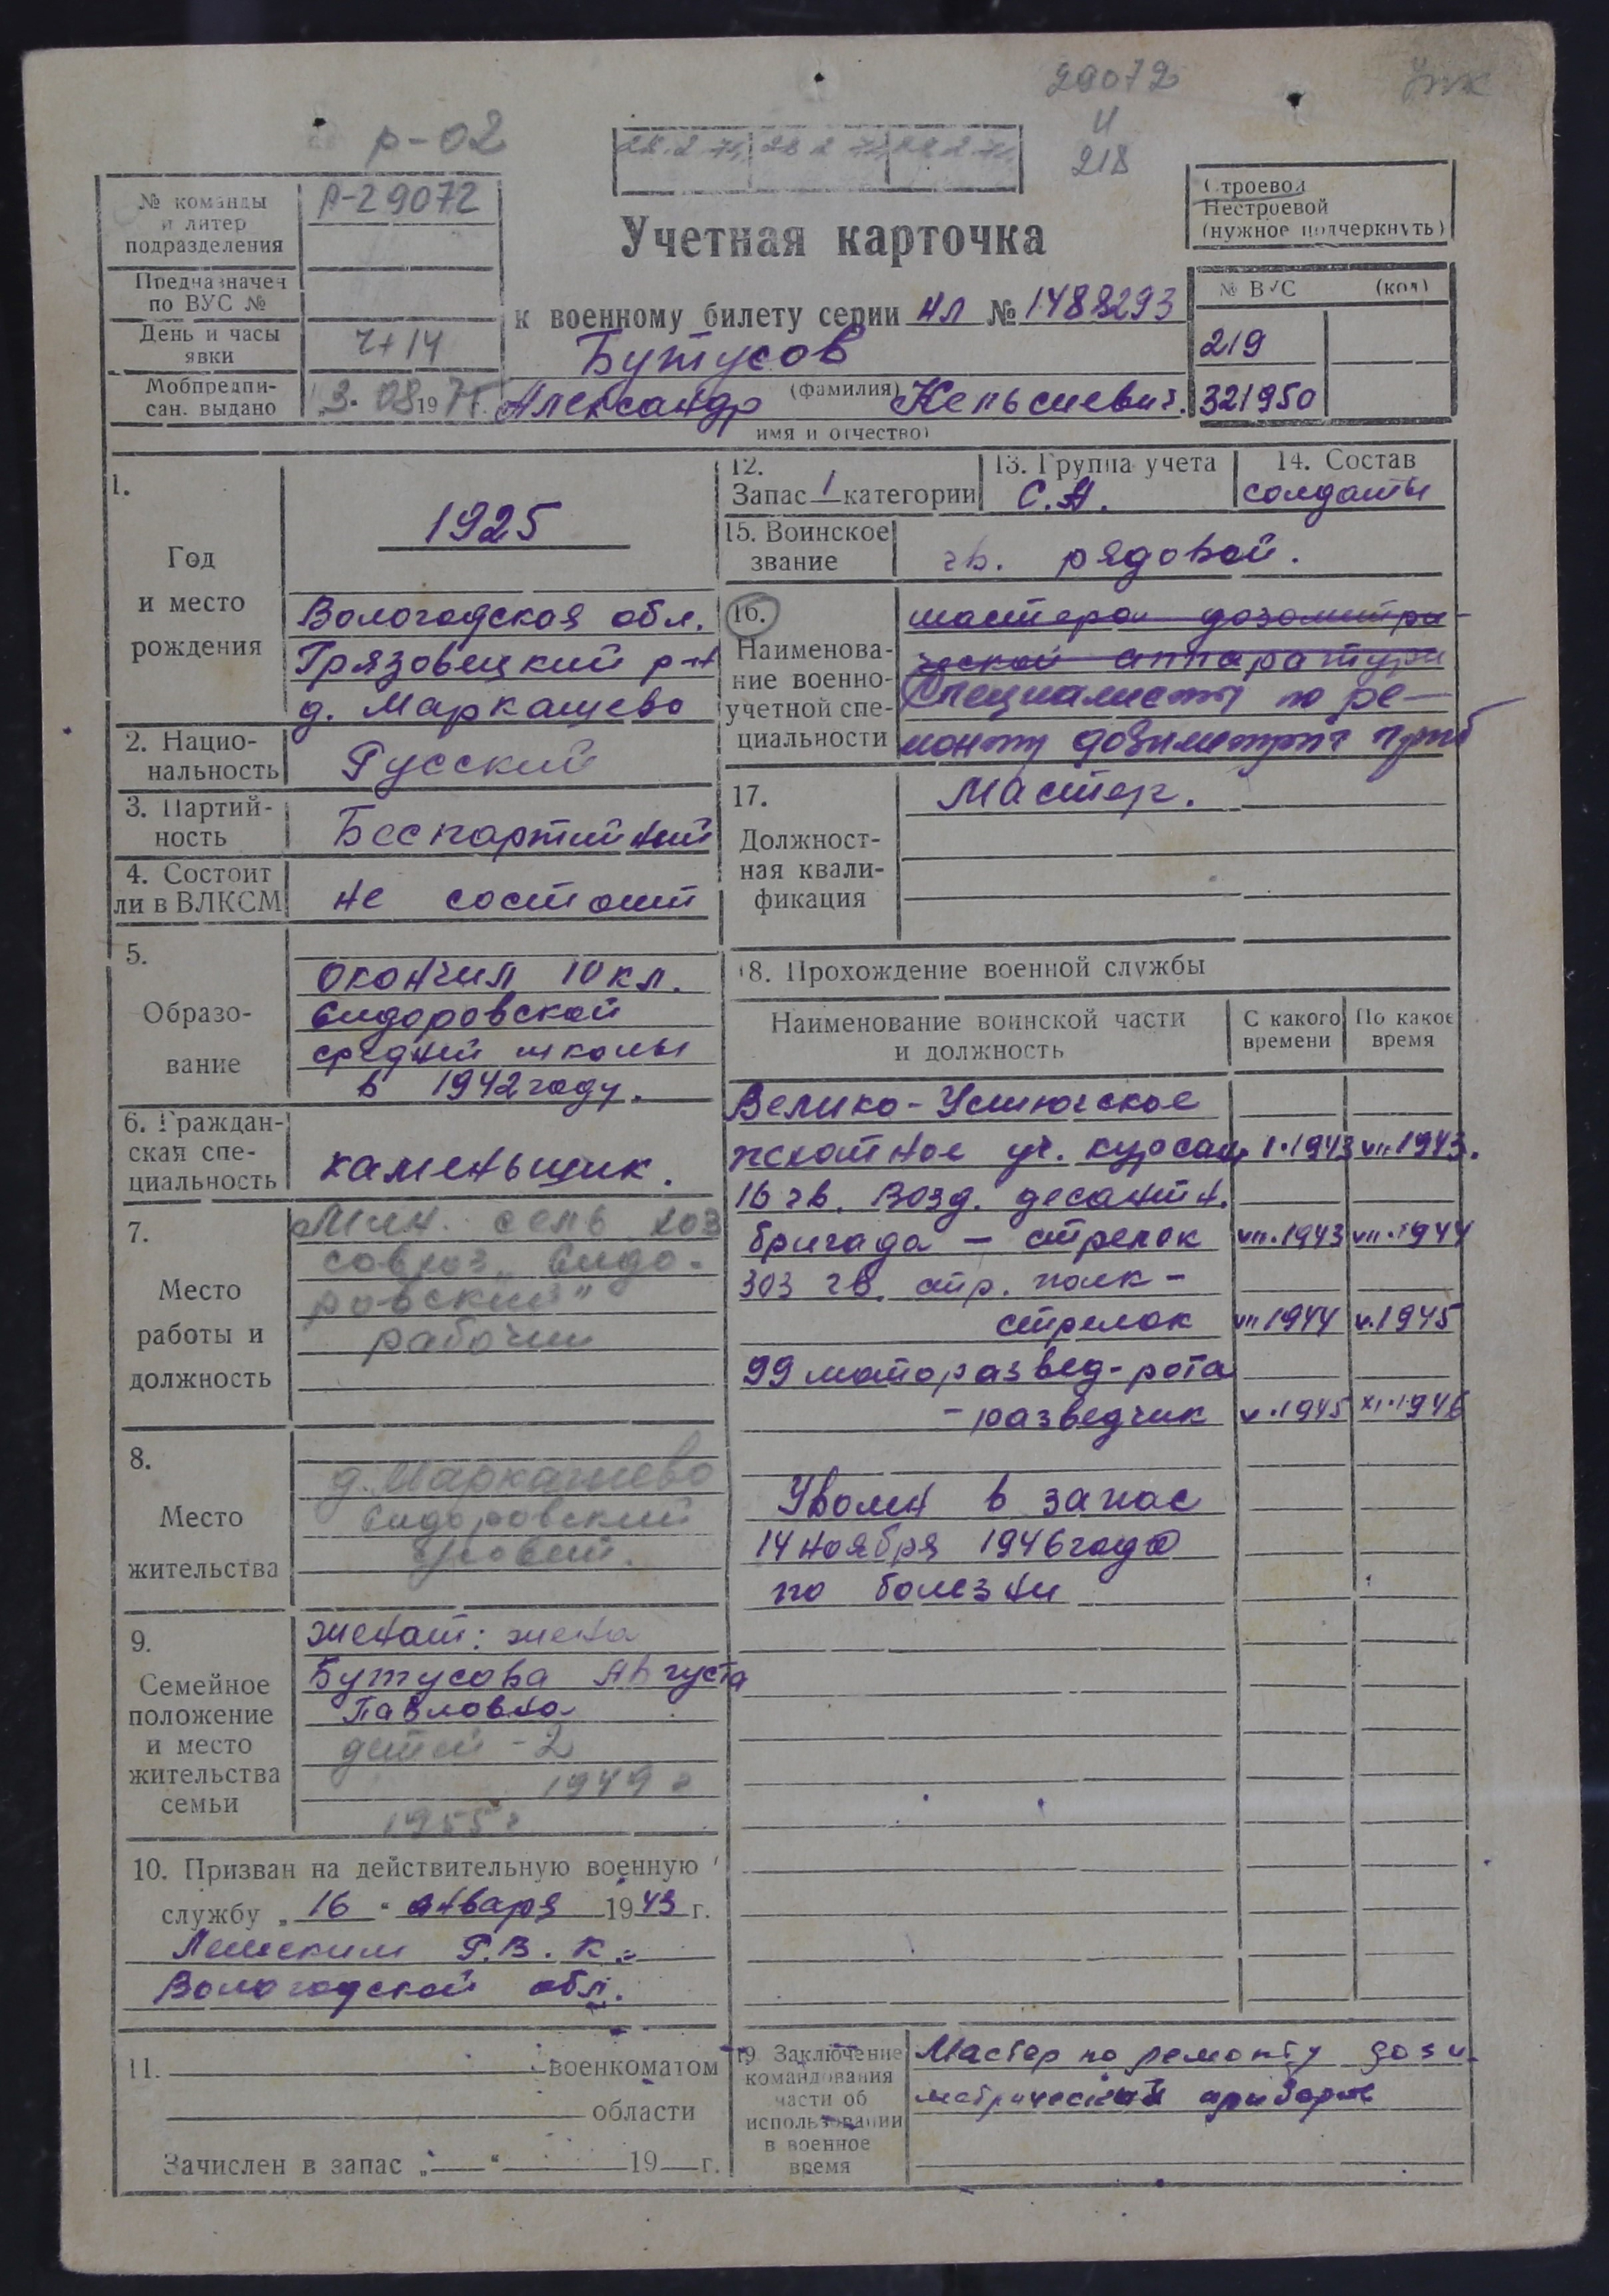 29072
р-02
218
№ команды
и литер
подразделения
Р-29072
Строевой
Нестроевой
(нужное подчеркнуть)
Учетная карточка
Предназначен
по ВУС №
№ ВУС (код)
к военному билету серии НЛ № 1488293
День и часы
явки
Ч+14
Бутусов
219
(фамилия)
Мобпредпи-
сан. выдано
Александр
321950
имя и отчество)
1.
Год
и место
рождения
1925
Вологодская обл.
Грязовецкий р-н
д. Маркашево
2. Нацио-
нальность
Русский
3. Партий-
ность
Беспартийный
4. Состоит
ли в ВЛКСМ
не состоит
5.
Образо-
вание
окончил 10 кл.
Сидоровской
средней школы
в 1942 году.
6. Граждан-
ская спе-
циальность
каменьщик.
7.
Место
работы и
должность
Мин. сель хоз
совхоз „Сидо-
ровский"
рабочий
8.
Место
жительства
д. Маркашево
Сидоровский
9.
Семейное
положение
и место
жительства
семьи
женат: жена
Бутусова Августа
Павловна
детей - 2
1949 г
1955 г
10. Призван на действительную военную
службу „16" января 1943 г.
Р.В.К.
Вологодской обл.
11. военкоматом
области
Зачислен в запас „ " 19 г.
12.
Запас 1 категории
13. Группа учета
С.А.
14. Состав
солдаты
15. Воинское
звание
гв. рядовой.
16.
Наименова-
ние военно-
учетной спе-
циальности
мастера дозометри-
ческой аппаратуры
Специалисты по ре-
монту
17.
Должност-
ная квали-
фикация
Мастер.
18. Прохождение военной службы
Наименование воинской части
и должность
С какого
времени
По какое
время
Велико-Устюгское
пехотное уч. курсант I.1943 VII.1943.
16 гв. Возд. десантн.
бригада - стрелок VII.1943 VII.1944
303 гв. стр. полк -
стрелок VII 1944 V.1945
99 моторазвед-рота
- разведчик V.1945 XI.1946
Уволен в запас
14 ноября 1946 года
по болезни
19 Заключение
командования
части об
использовании
в военное
время
Мастер по ремонту дози
метрический приборов